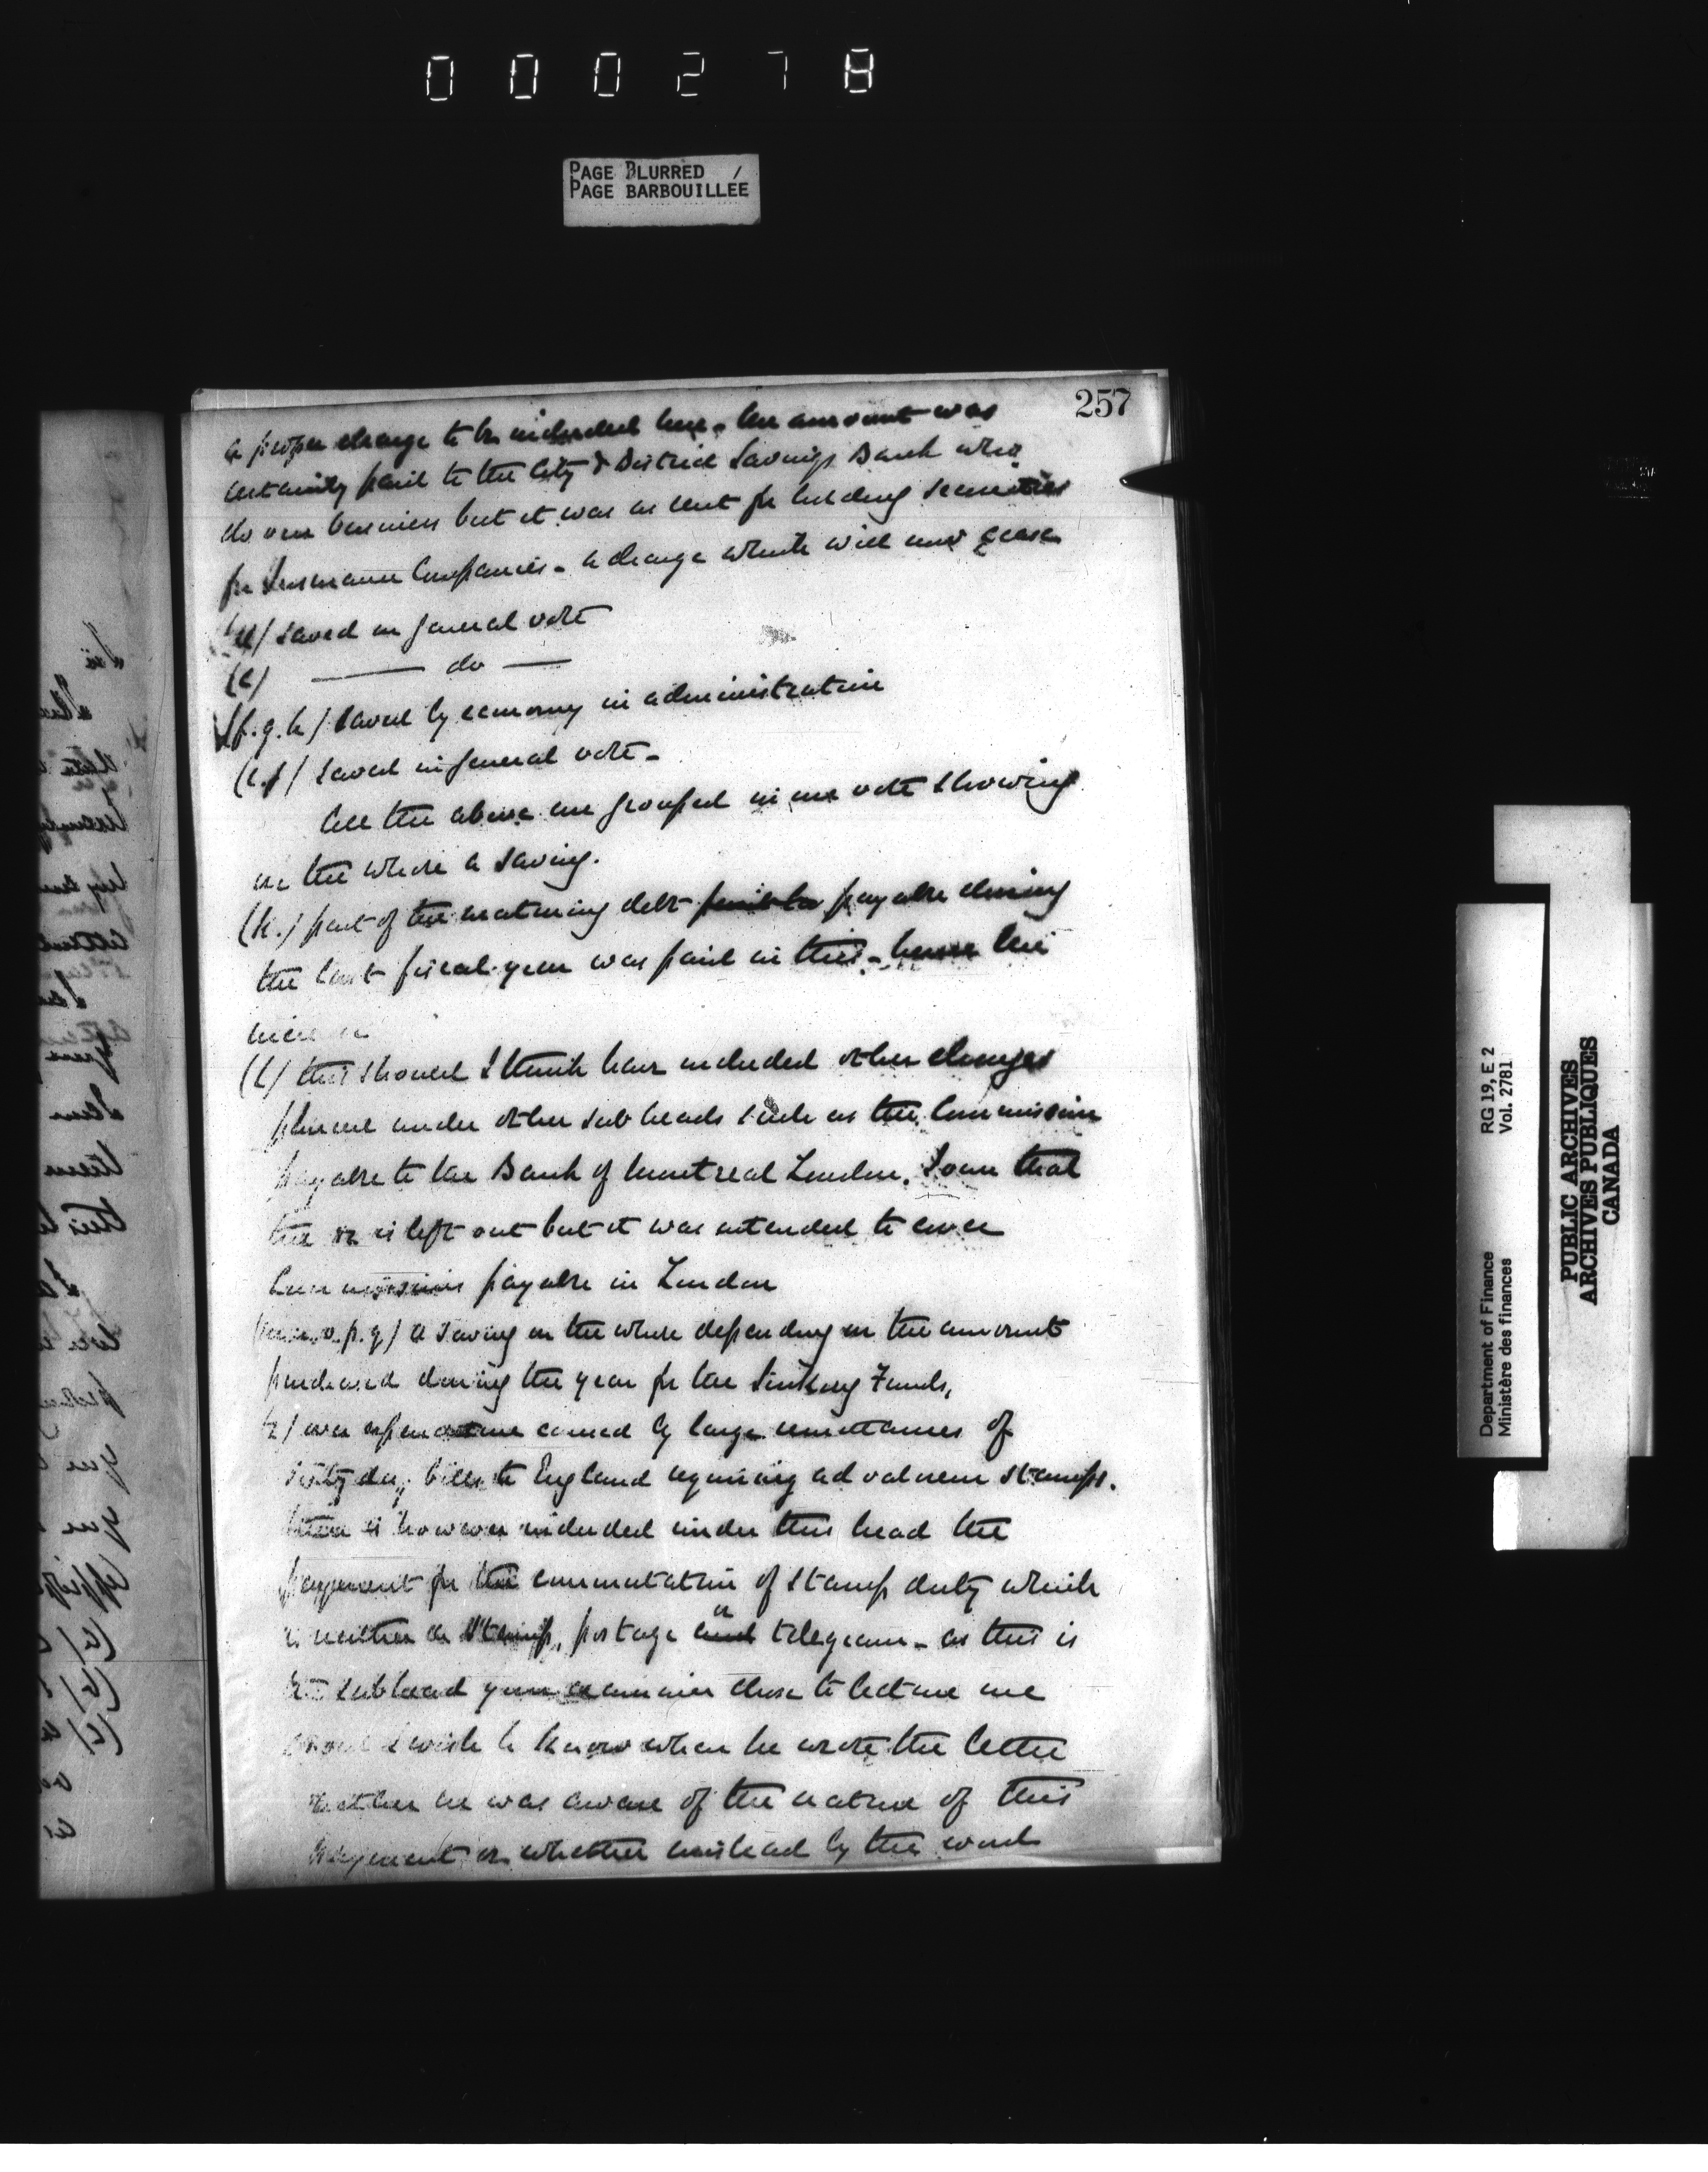 000278
PAGE BLURRED /
PAGE BARBOUILLÉE
257
a proper charge to be included here - the amount was
certainly paid to the City & District Savings Bank who
do our business but it was as rent for holding securities
for Insurance Companies - a charge which will now cease
(d) saved on general vote
(e) —— do ——
(f. g. h) saved by economy in administration
(i. j) saved in general vote -
All the above are grouped in one vote showing
on the whole a saving.
(k.) part of the maturing debt payable during
the last fiscal year was paid in this - hence the
(l) this should I think have included other charges
under other sub heads such as the Commission
payable to the Bank of Montreal London. I own that
the is left out but it was intended to cover
Commissions payable in London
o. p. q) a saving on the whole depending on the amount
purchased during the year for the Sinking Funds,
(r) over expenditure caused by large remittances of
sixty day bills to England requiring ad valorem stamps.
there is however included under this head the
payment for the commutation of stamp duty which
is neither a stamp, postage or telegram - as this is
subhead your examiner chose to lecture me
about I wish to know when he wrote the letter
whether he was aware of the nature of this
payment or whether mislead by the word
Department of Finance RG 19, E 2
Ministère des finances Vol. 2781
PUBLIC ARCHIVES
ARCHIVES PUBLIQUES
CANADA